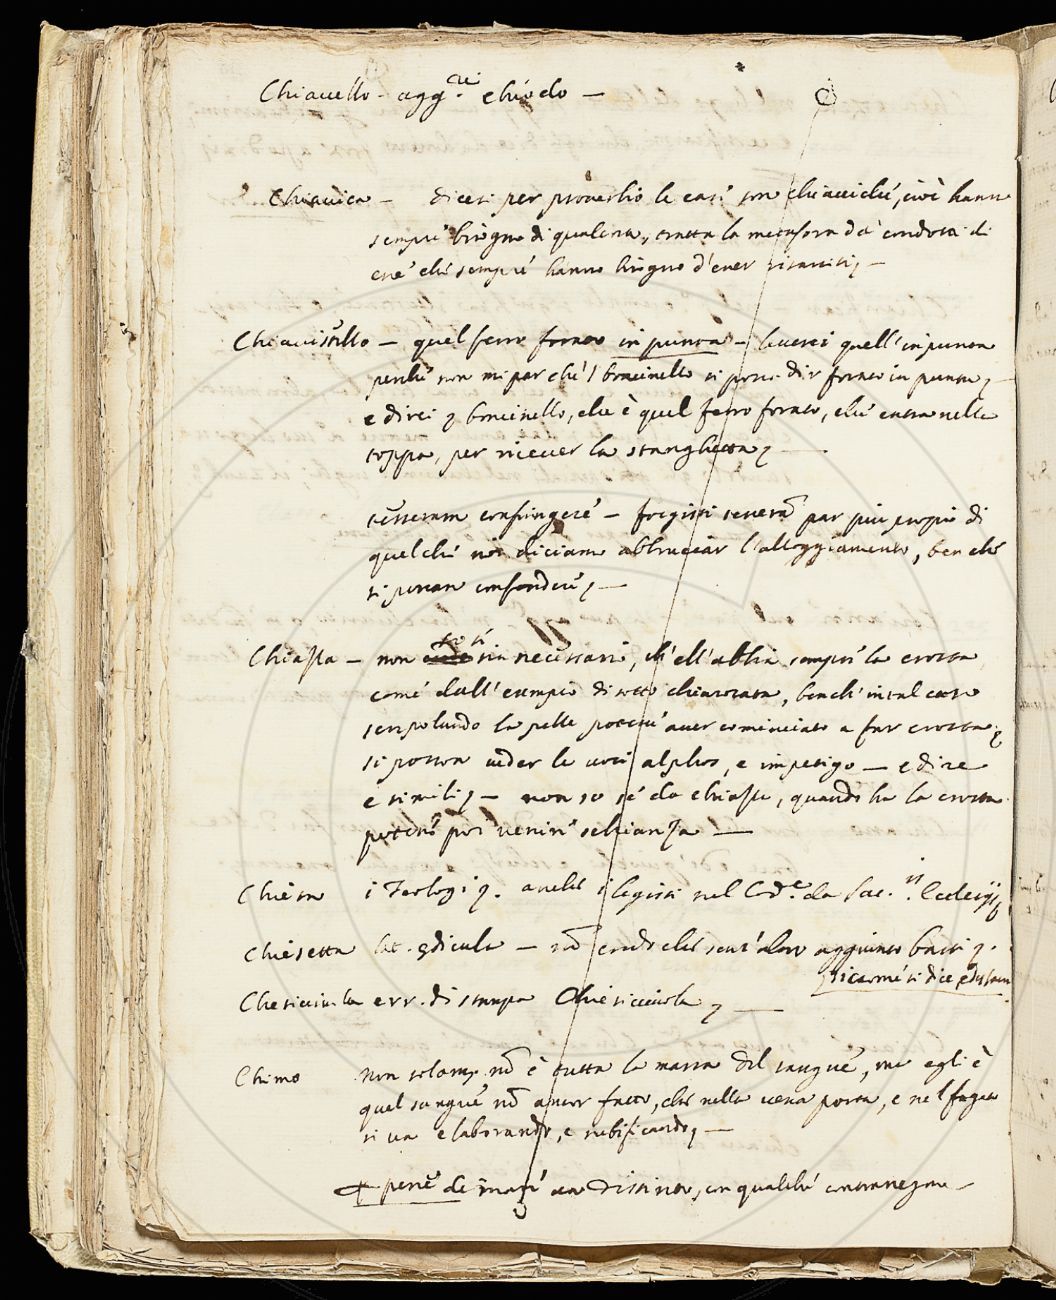 Chiavello - agg.re chiodo —
Chiavica — dicesi per proverbio le case son chiaviche, cioè hanno
sempre bisogno di qualcosa, tratta la metafora da condotti di
che sempre hanno bisogno d'esser risarciti, —
Chiavistello — quel ferro forato in punta — leverei quell'in punta
perché non mi par che 'l boncinello si possa dir forato in punta, —
e direi boncinello, che è quel ferro forato, che entra nella
toppa, per ricever la stanghetta, —
tesseram confringere — forgitti par più proprio di
quel che noi diciamo abbruciar l'alloggiamento, ben che
si possan confondere, —
Chiasta — non sia necessario, ch'ell'abbia sempre la crosta
come dall'esempio di sotto, bench' in tal caso
la pelle poteva aver cominciato a far crosta
si posson veder le voci alphos, e impetigo — e dire
e simili, — non so se da chiaste, quando ha la crosta
potesse poi venire schianza —
Chiesa i Teologi anche i legisti nel Cod.e da Sac.is Ecclesijs
Chiesetta lat. ędicula — nō credo che senz'altro aggiunto basti
siccome si dice
Chesicciuola err. di stampa Chiesicciuola, —
Chimo non solamẽ nō è tutta la massa del sangue, ma egli è
quel sangue nō ancor fatto, che nella vena porta, e nel fegato
si va elaborando, e rubificando, —
pene de mani con qualche contrassegno —